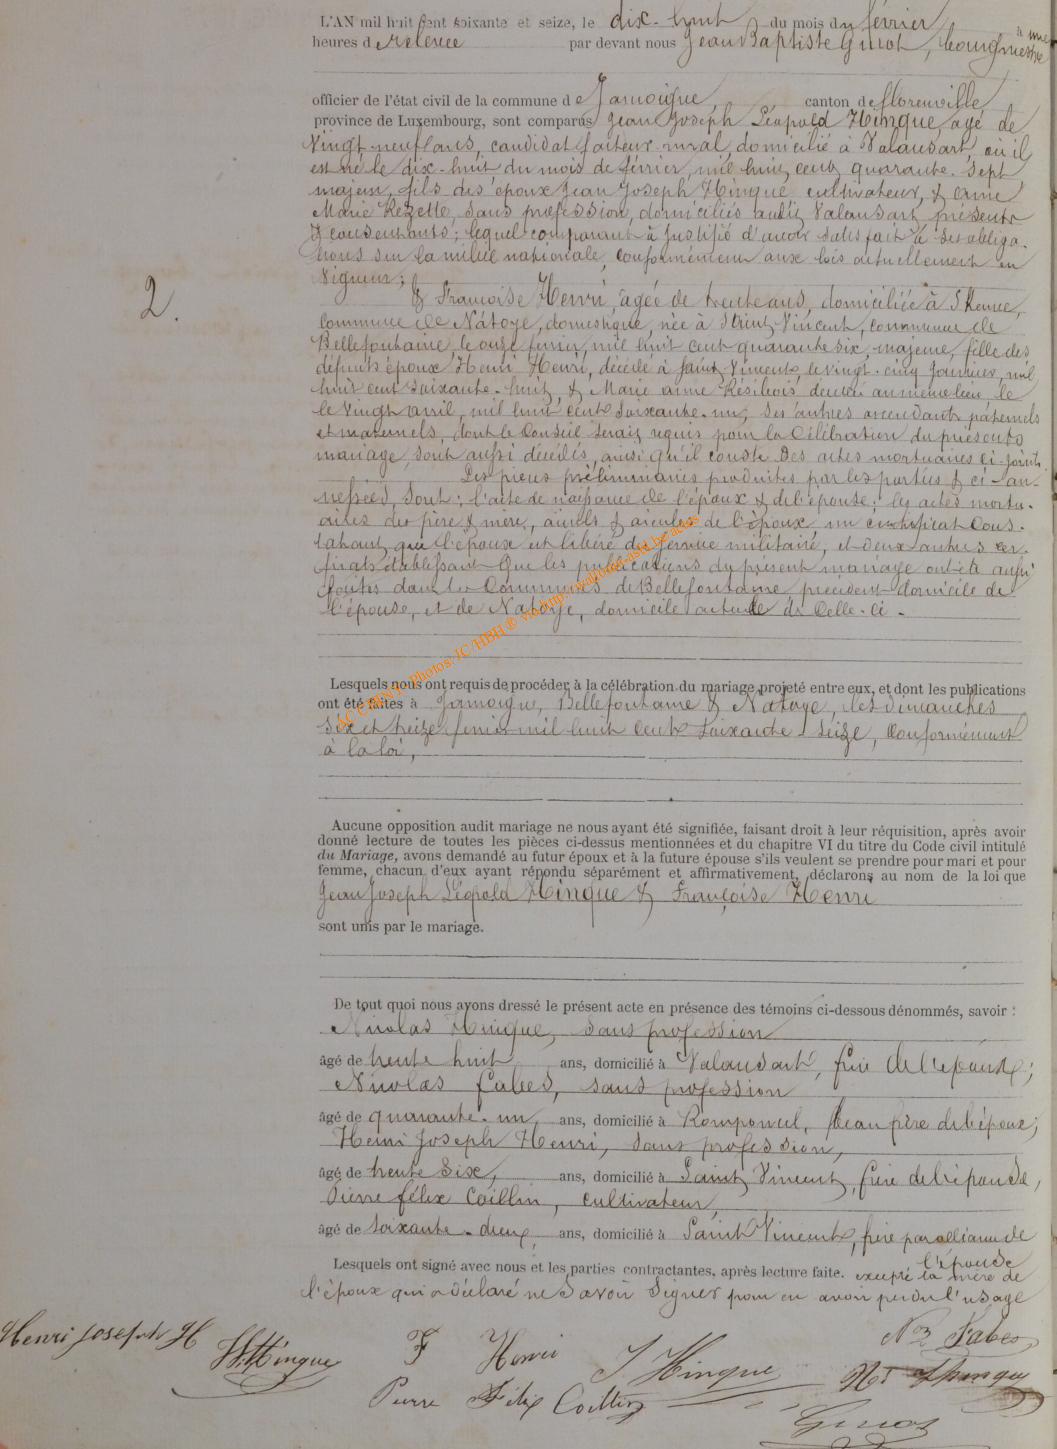 L'AN mil huit cent soixante et seize, le dix-huit du mois du février à une
heures de relevée par devant nous Jean Baptiste Ginot, bourgmestre
officier de l'état civil de la commune de Jamoigne, canton de florenville
province de Luxembourg, sont comparus Jean Joseph Léopold Hinque, agé de
Vingt-neuf ans, candidat facteur rural, domicilié à Valansart, où il
est né le dix-huit du mois de février, mil huit cent quarante-sept
majeur, fils des époux Jean Joseph Hinque cultivateur, & anne
Marie Rézette, sans profession, domiciliés audit Valansart présents
& consentants; lequel comparant à justifié d'avoir satisfait à ses obliga-
tions sur la milice nationale, conformément aux lois actuellement en
Vigueur;
2. & Françoise Henri, âgée de trente ans, domiciliée à
commune de Natoye, domestique, née à Saint Vincent, commune de
Bellefontaine, le onze février, mil huit cent quarante six, majeure, fille des
défunts époux Henri Henri, décédé à Saint Vincent, le vingt-cinq janvier, mil
huit cent soixante-huit, & Marie anne décédée au même lieu, le
le Vingt avril, mil huit cent soixante-un; ses autres ascendants paternels
et maternels, dont le Conseil serait requis pour la Célébration du présent
mariage, sont aussi décédés, ainsi qu'il conste des actes mortuaires ci-joints
Les pièces préliminaires produites par les parties & ci-an-
nexées, sont: l'acte de naissance de l'époux & de l'épouse; les actes mortu-
aires des père & mère, aïeuls & aïeules de l'épouse un certificat Cons-
tatant que l'époux est libéré du service militaire, et deux autres cer-
tificats établissant que les publications du présent mariage ont été aussi
faites dans les Communes de Bellefontaine précédent domicile de
l'épouse, et de Natoye, domicile actuelle de Celle-ci.
AC CHINY - Photos: JC HBH ®
Lesquels nous ont requis de procéder à la célébration du mariage projeté entre eux, et dont les publications
ont été faites à Jamoigne, Bellefontaine & Natoye, les dimanches
six et treize février mil huit cent soixante-seize, Conformément
à la loi,
Aucune opposition audit mariage ne nous ayant été signifiée, faisant droit à leur réquisition, après avoir
donné lecture de toutes les pièces ci-dessus mentionnées et du chapitre VI du titre du Code civil intitulé
du Mariage, avons demandé au futur époux et à la future épouse s'ils veulent se prendre pour mari et pour
femme, chacun d'eux ayant répondu séparément et affirmativement, déclarons au nom de la loi que
Jean Joseph Léopold Hinque & Françoise Henri
sont unis par le mariage.
De tout quoi nous avons dressé le présent acte en présence des témoins ci-dessous dénommés, savoir :
Nicolas Hinque, sans profession
âgé de trente huit ans, domicilié à Valansart, frère de l'époux;
Nicolas Fabes, sans profession
âgé de quarante-un, ans, domicilié à Romponcel, beau frère de l'époux;
Henri Joseph Henri, sans profession,
âgé de trente six, ans, domicilié à Saint Vincent, frère de l'épouse,
Pierre félix Caillin, cultivateur,
âgé de soixante-deux, ans, domicilié à Saint Vincent, frère par alliance de
l'épouse
Lesquels ont signé avec nous et les parties contractantes, après lecture faite. excepté la mère de
l'époux qui a déclaré ne Savoir Signer pour en avoir perdu l'usage
Henri joseph H
Hinque
F Henri
J Hinque
Nas Fabes
Pierre Félix
Ginot